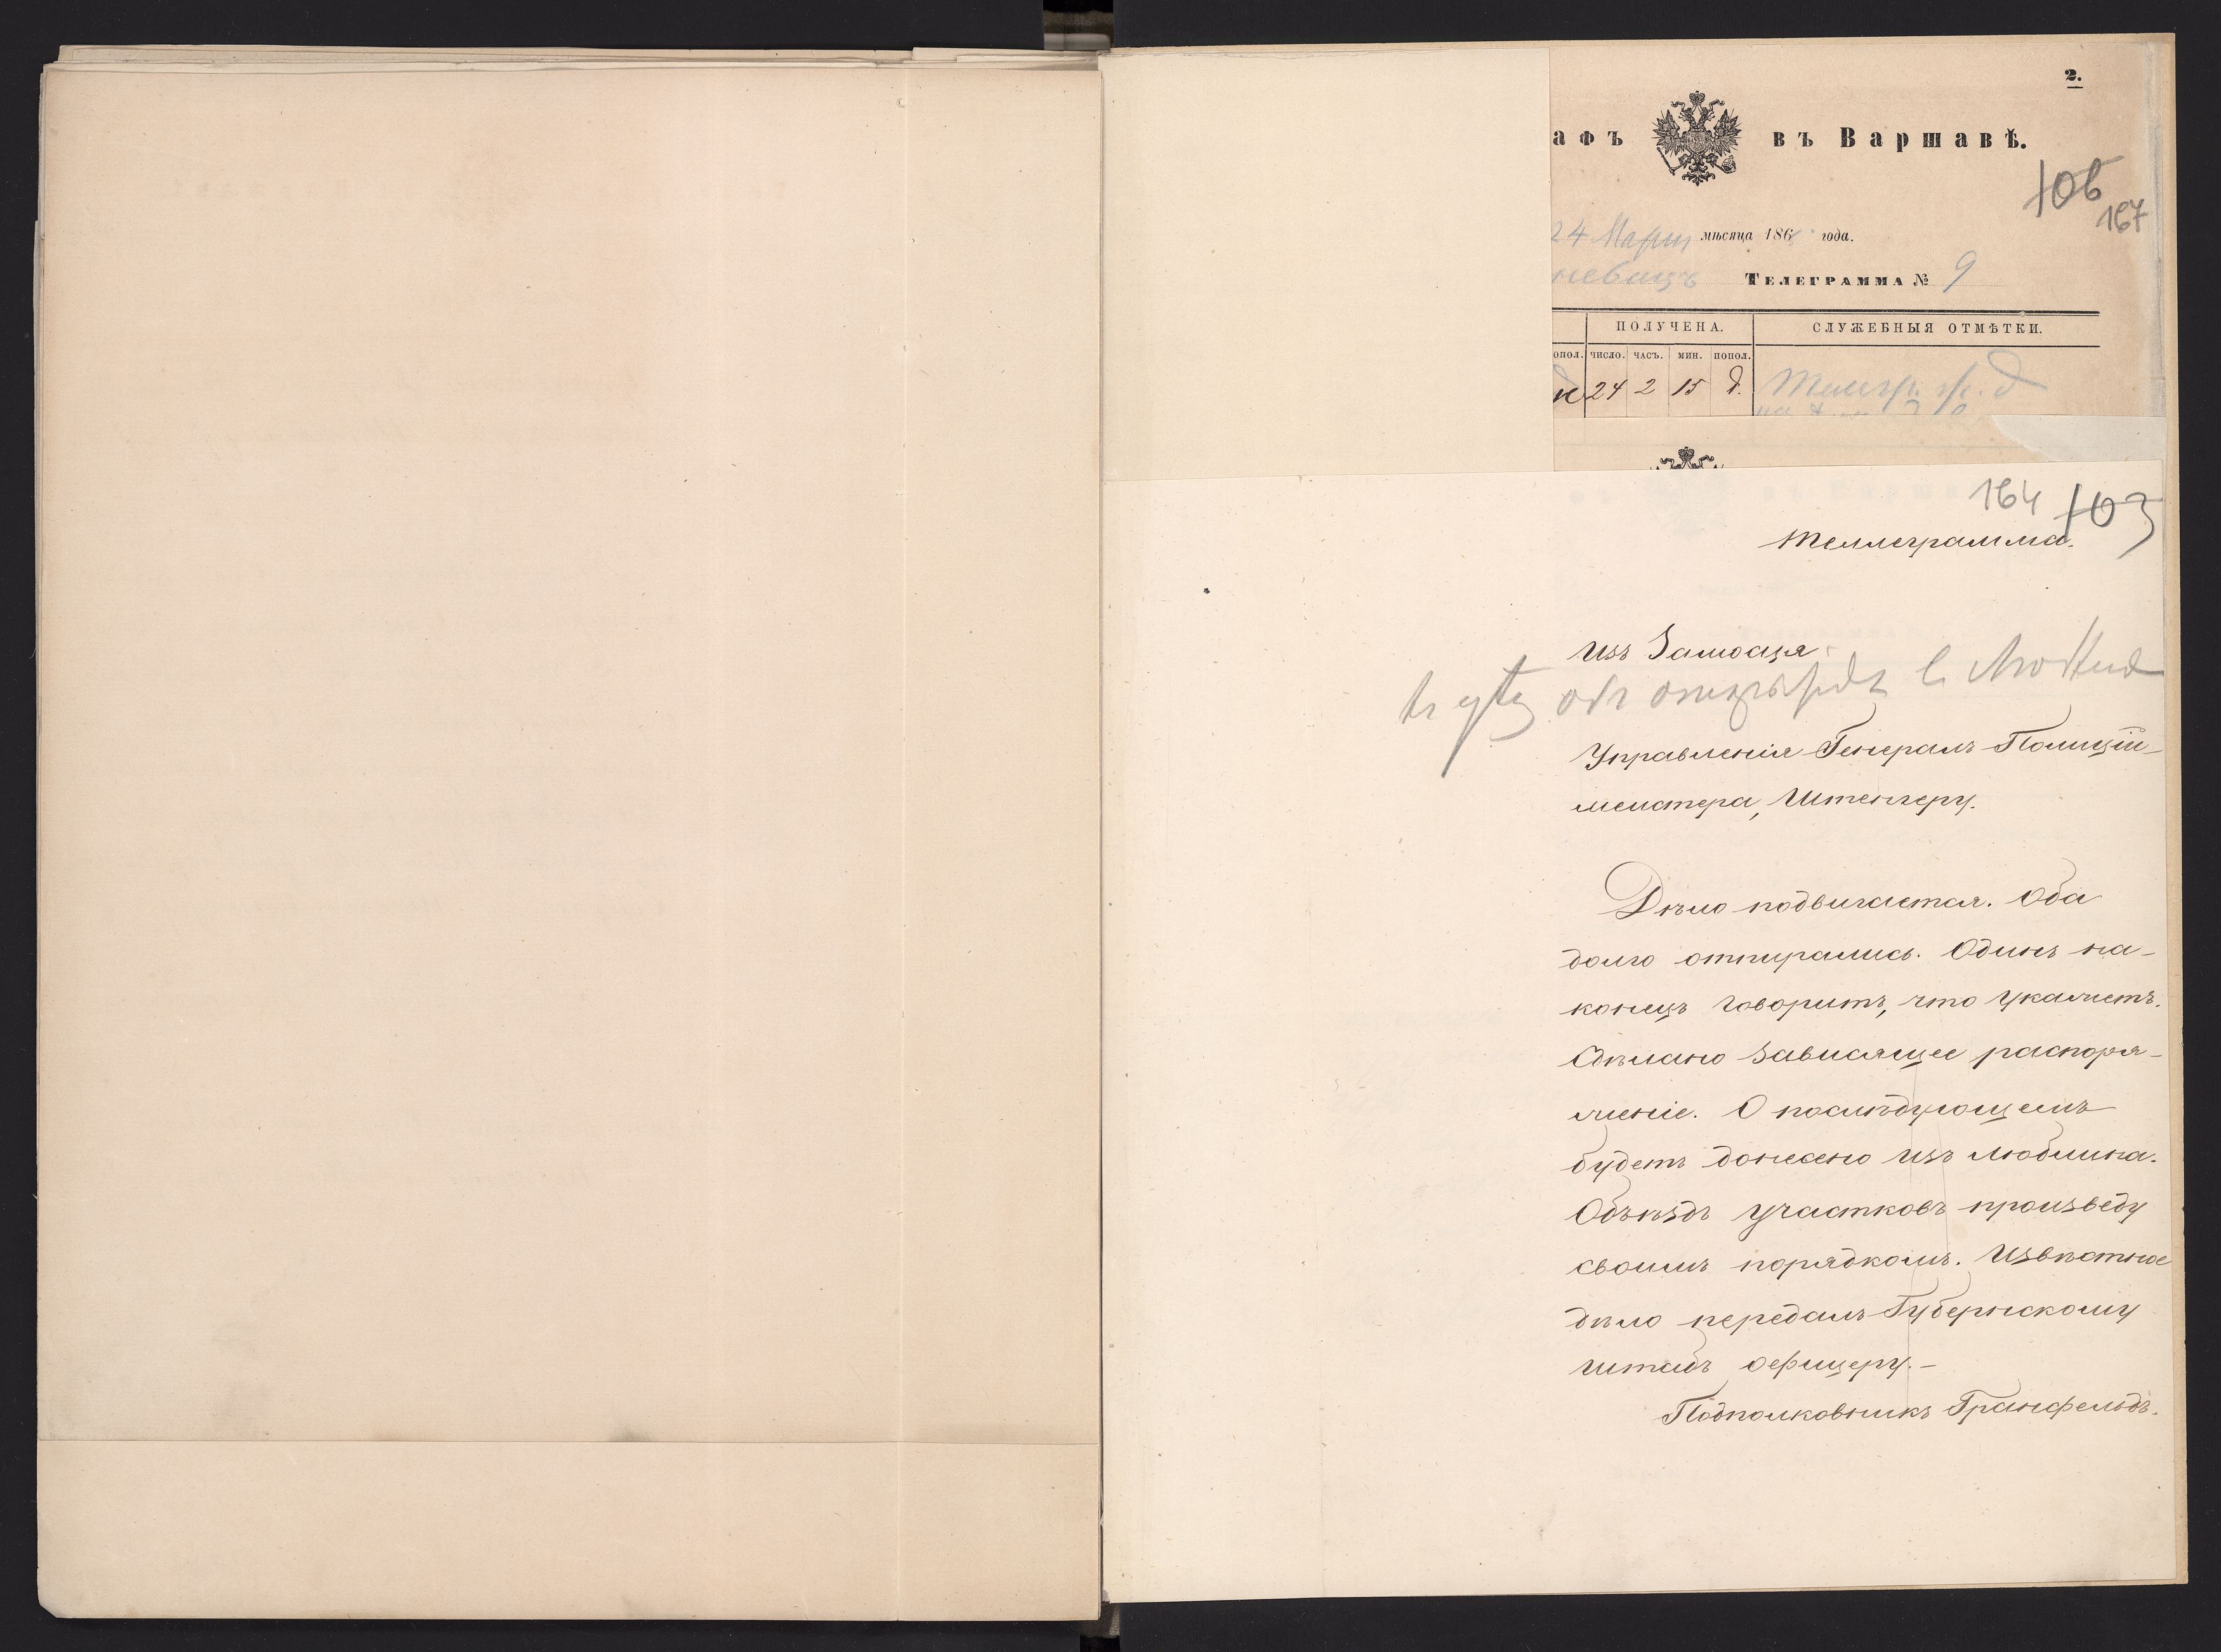 2.
афъ въ Варшавѣ.
106
167
24 Марта мѣсяца 186 года.
Телеграмма № 9
ПОЛУЧЕНА. СЛУЖЕБНЫЯ ОТМѢТКИ.
опол. ЧИСЛО. ЧАСЪ. МИН. ПОПОЛ.
24 2 15 д.
164 103
Теллеграмма.
Изъ Замосця.
Управленія Генералъ Полиціи-
мейстера, Штенгеру.
Дѣло подвигается. Оба
долго отпирались. Одинъ на-
конецъ говоритъ, что укажетъ.
Сдѣлано зависящее распоря-
женіе. О послѣдующемъ
будетъ донесено изъ Люблина.
Объѣздъ участковъ произведу
своимъ порядкомъ. Извѣстное
дѣло передалъ Губернскому
Штабъ офицеру.-
Подполковникъ Гранфельдъ.